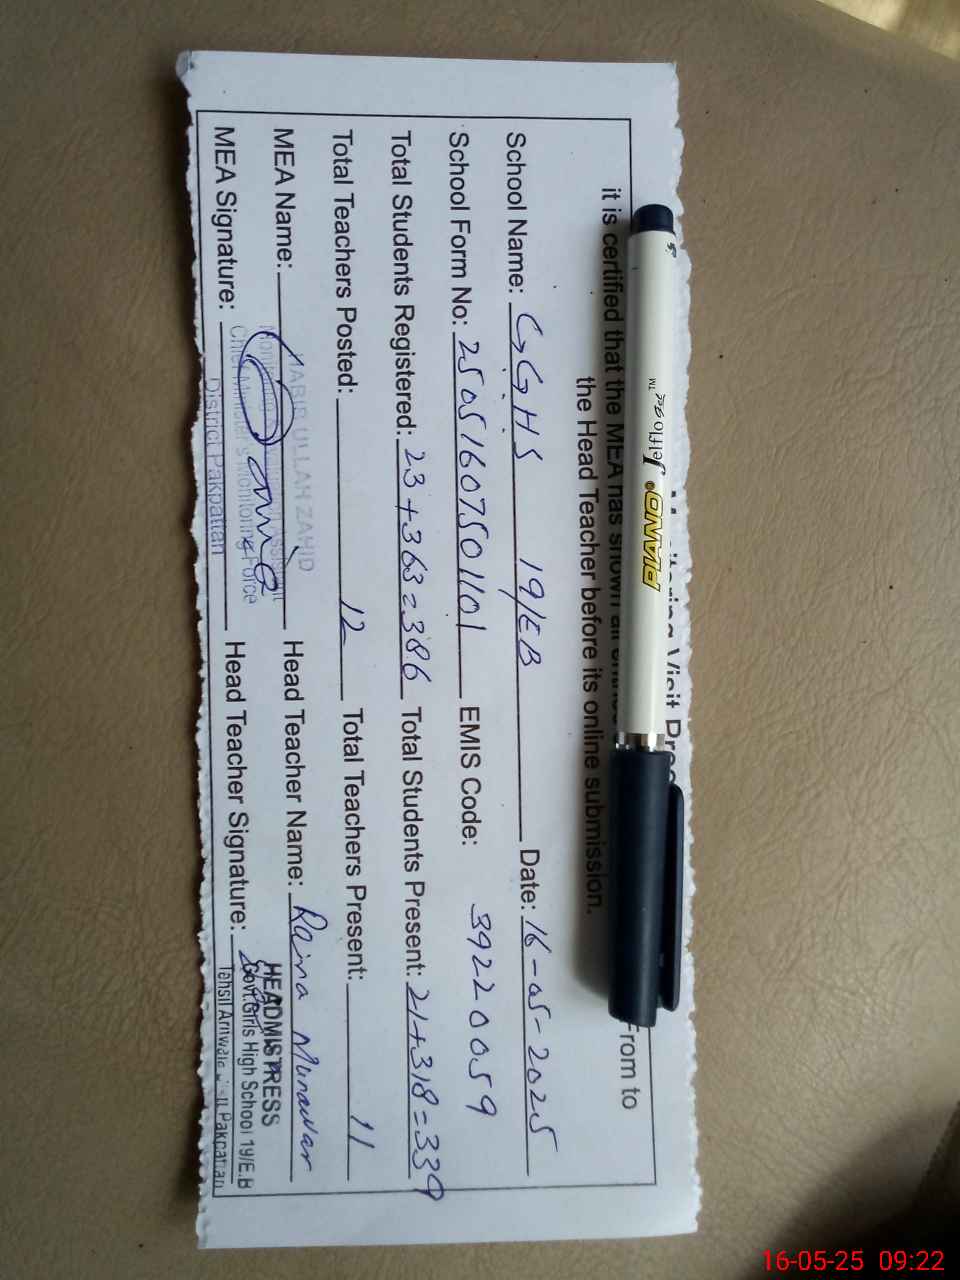 it is certified that the MEA has shown all
From to
the Head Teacher before its online submission.
School Name: GGHS 19/EB Date: 16-05-2025
School Form No: 25051607501101 EMIS Code: 39220059
Total Students Registered: 23+363=386 Total Students Present: 21+318=339
Total Teachers Posted: 12 Total Teachers Present: 11
MEA Name: Head Teacher Name: Raina Munawar
MEA Signature: Head Teacher Signature:
ULLAH ZAHID
Chief Minister's Monitoring Force
District Pakpattan
HEADMISTRESS
Govt.Girls High School 19/E.B
Tehsil Arifwala Pakpattan
PIANO® Jeltlo gel ™
16-05-25 09:22